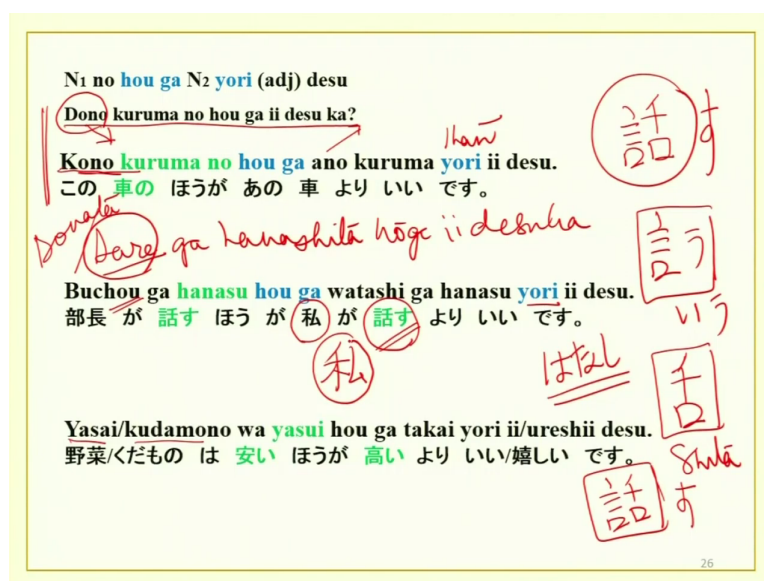 N1 no hou ga N2 yori (adj) desu
Dono kuruma no hou ga ii desu ka?
than
Kono kuruma no hou ga ano kuruma yori ii desu.
この 車の ほうが あの 車 より いい です。
話す
Donata
Dare ga hanashita hōga ii desuka
言う
いう
Buchou ga hanasu hou ga watashi ga hanasu yori ii desu.
部長 が 話す ほう が 私 が 話す より いい です。
私
はなし
舌
Yasai/kudamono wa yasui hou ga takai yori ii/ureshii desu.
野菜/くだもの は 安い ほうが 高い より いい/嬉しい です。
Shitā
話す
26